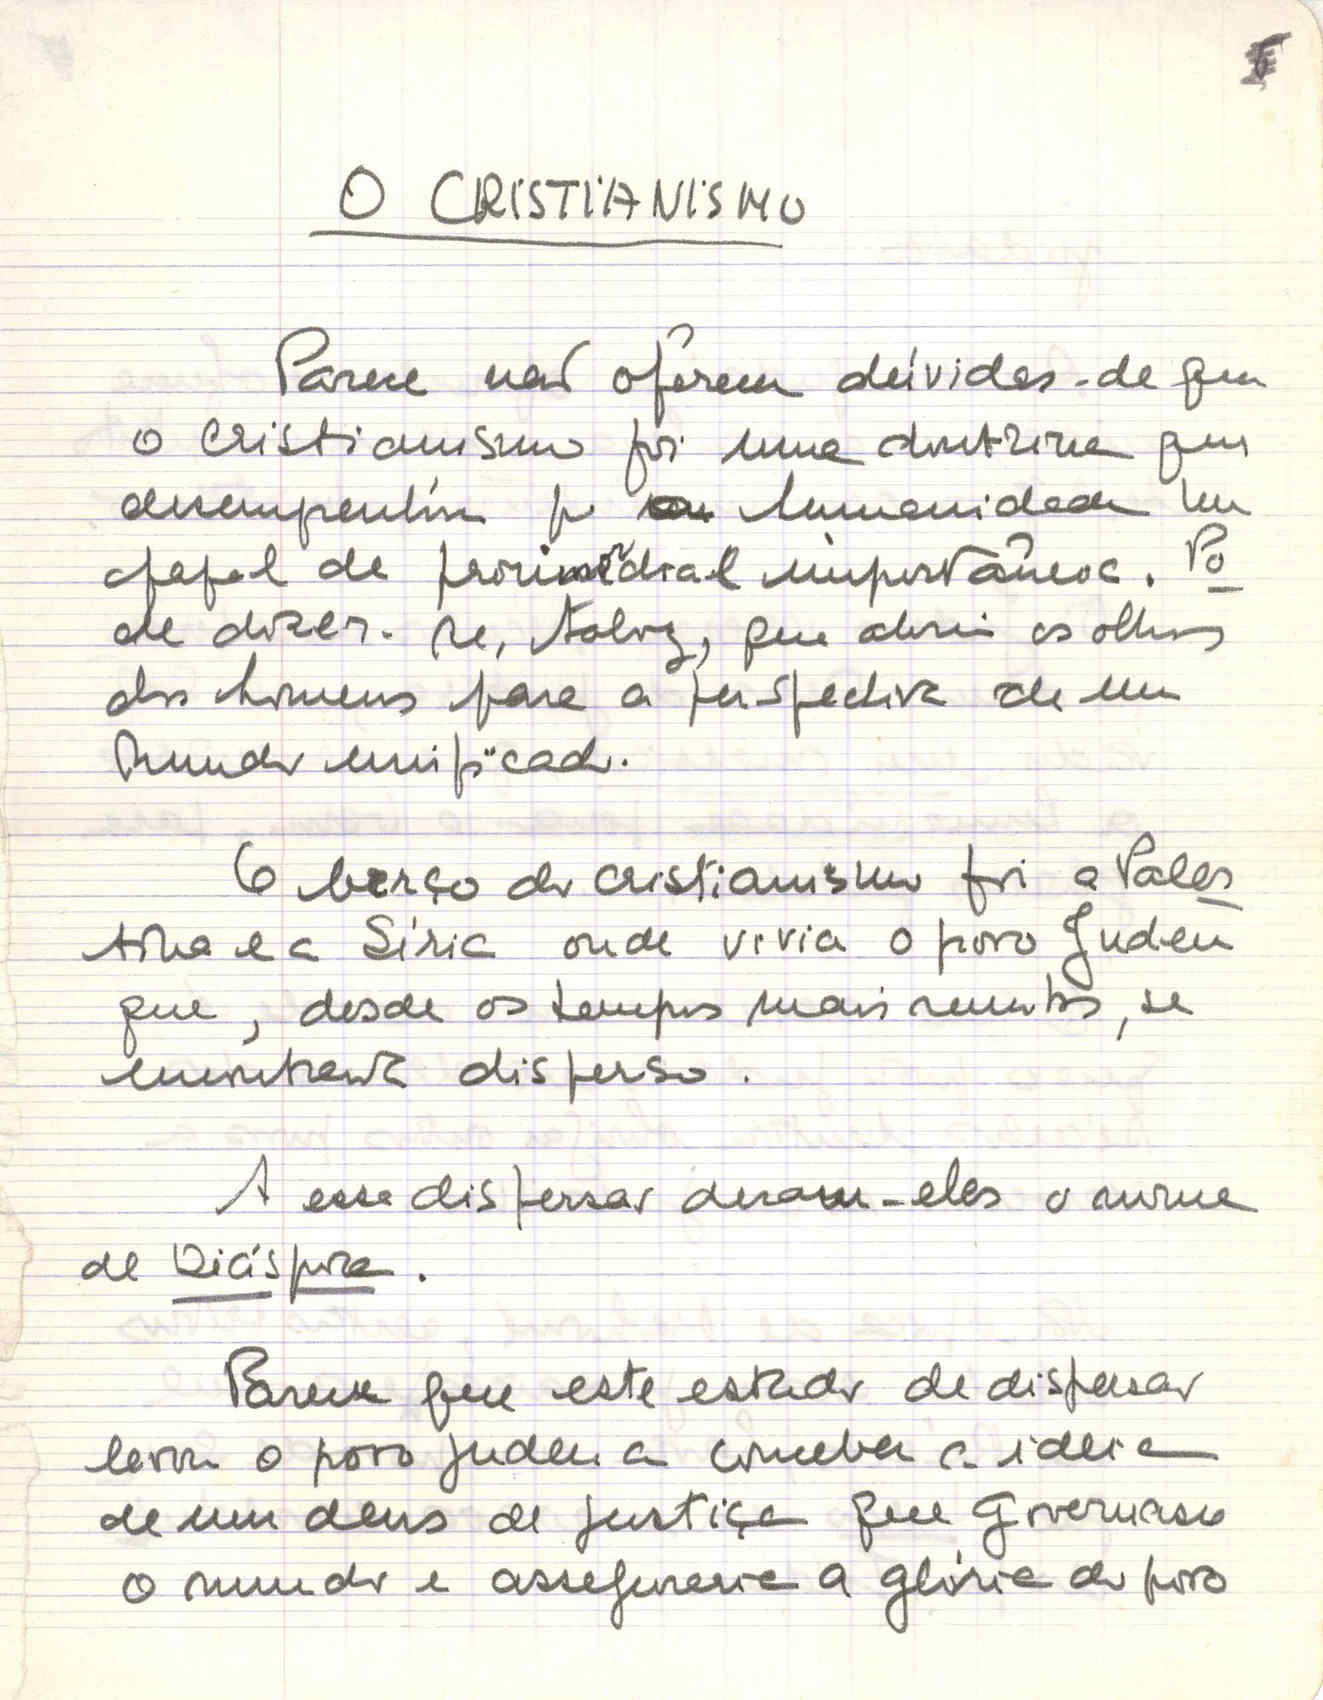 O CRISTIANISMO
Parece não oferecer dúvidas de que
o cristianismo foi uma doutrina que
desempenhou p/ a humanidade um
papel de primordial importância. Po
de dizer-se, talvez, que abriu os olhos
dos homens para a perspectiva de um
mundo unificado.
O berço do cristianismo foi a Pales
tina e a Síria onde vivia o povo Judeu
que, desde os tempos mais remotos, se
encontrava disperso.
A esse dispersar deram-eles o nome
de Diáspora.
Parece que este estado de dispersar
levou o povo judeu a conceber a ideia
de um deus de justiça que governasse
o mundo e assegurasse a glória do povo